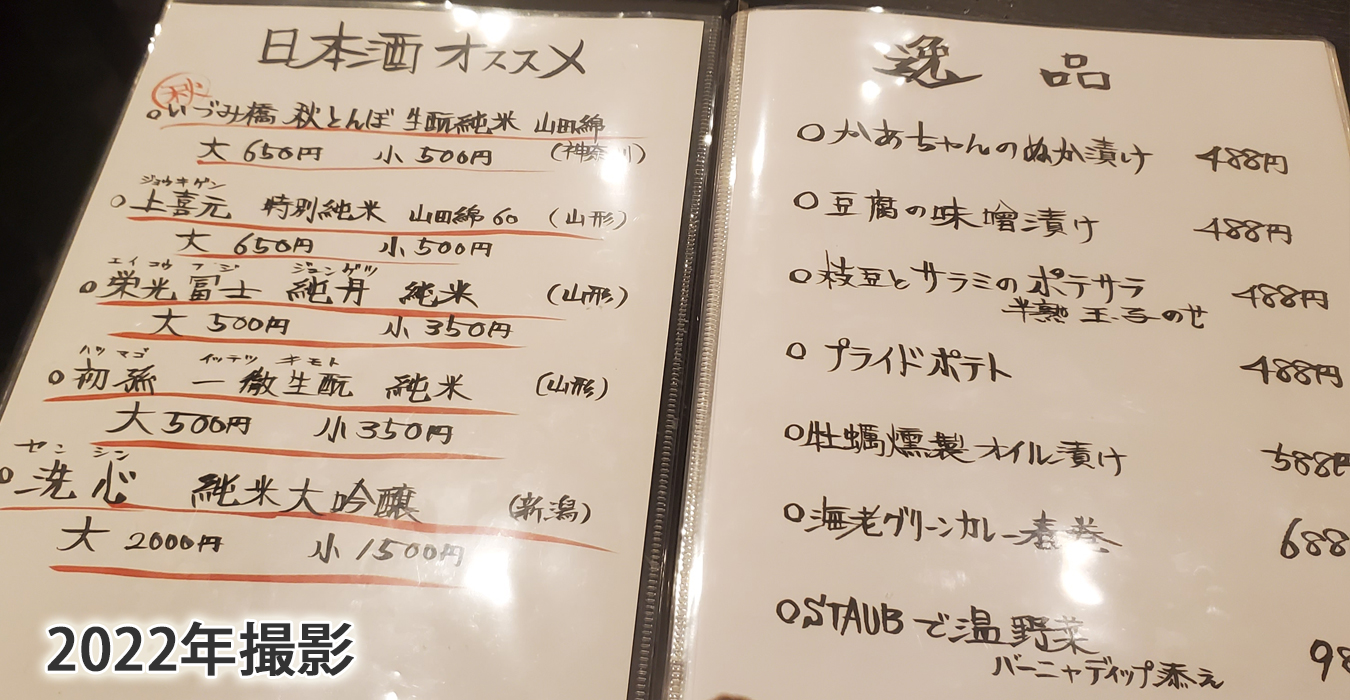 日本酒 オススメ
秋
○いづみ橋 秋とんぼ 生酛純米 山田錦
大 650円 小 500円 (神奈川)
ジョウキゲン
○上喜元 特別純米 山田錦60 (山形)
大 650円 小 500円
エイコウフジ ジュンゲツ
○栄光冨士 純月 純米 (山形)
大 500円 小 350円
ハツマゴ イッテツ キモト
○初孫 一徹生酛 純米 (山形)
大 500円 小 350円
センシン
○洗心 純米大吟醸 (新潟)
大 2000円 小 1500円
逸品
○かあちゃんのぬか漬け 488円
○豆腐の味噌漬け 488円
○枝豆とサラミのポテサラ 488円
半熟玉子のせ
○フライドポテト 488円
○牡蠣燻製オイル漬け 588円
○海老グリーンカレー春巻 688
○STAUBで温野菜 98
バーニャディップ添え
2022年撮影